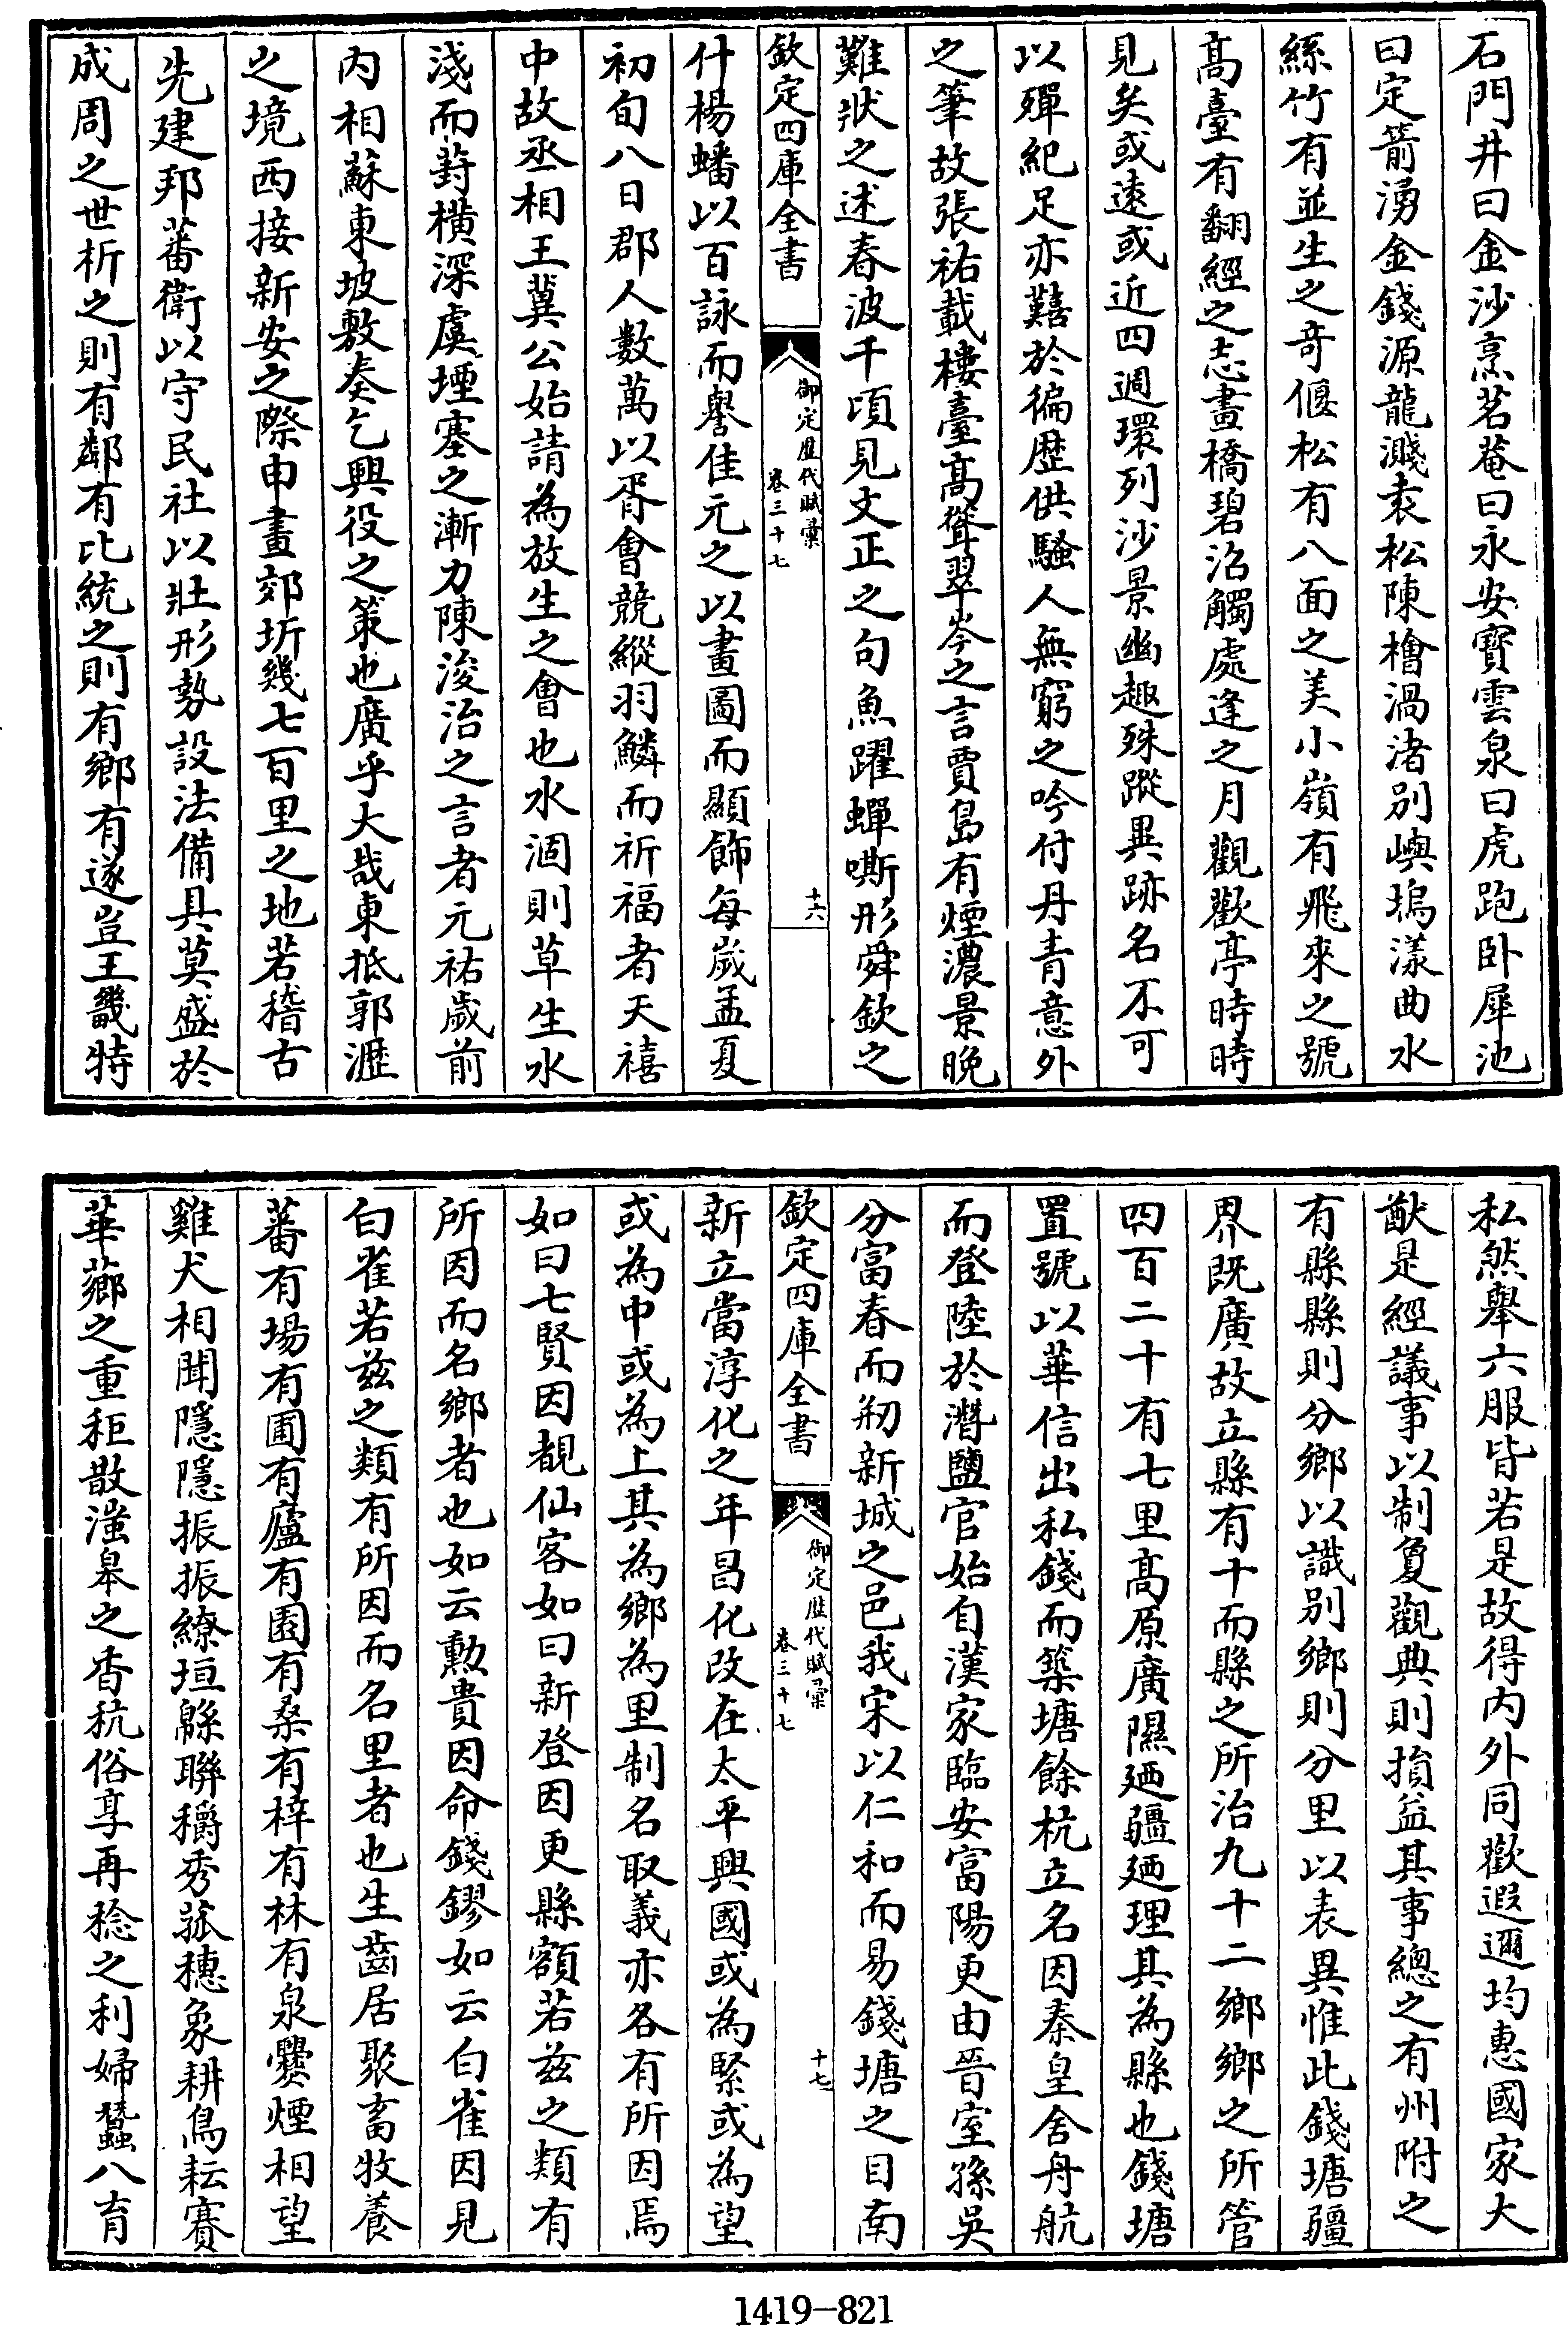 石門井曰金沙烹茗菴曰永安寶雲泉曰虎跑卧犀池
曰定箭湧金錢源龍濺袁松陳檜渦渚别嶼塢漾曲水
絲竹有並生之竒偃松有八面之美小嶺有飛來之號
髙臺有翻經之志畫橋碧沼觸處逢之月觀歡亭時時
見矣或逺或近四週環列沙景幽趣殊蹤異跡名不可
以殫紀足亦囏於徧歴供騷人無窮之吟付丹青意外
之筆故張祐載樓臺髙聳翠岑之言賈島有煙濃景晚
難狀之述春波千頃見文正之句魚躍蟬嘶形舜欽之
欽定四庫全書
御定歴代賦彙
卷三十七
十六
什楊蟠以百詠而譽佳元之以畫圖而顯飾每歲孟夏
初旬八日郡人數萬以胥會競縱羽鱗而祈福者天禧
中故丞相王冀公始請為放生之會也水涸則草生水
淺而葑横深虞堙塞之漸力陳浚治之言者元祐歲前
内相蘇東坡敷奏乞興役之策也廣乎大哉東抵郭瀝
之境西接新安之際申畫郊圻幾七百里之地若稽古
先建邦蕃衛以守民社以壯形勢設法備具莫盛於
成周之世析之則有鄰有比統之則有鄉有遂豈王畿特
私然舉六服皆若是故得内外同歡遐邇均惠國家大
猷是經議事以制夐觀典則損益其事總之有州附之
有縣縣則分鄉以識别鄉則分里以表異惟此錢塘疆
界既廣故立縣有十而縣之所治九十二鄉鄉之所管
四百二十有七里髙原廣隰廼疆廼理其為縣也錢塘
置號以華信出私錢而築塘餘杭立名因秦皇舍舟航
而登陸於潛鹽官始自漢家臨安富陽更由晉室孫吳
分富春而剏新城之邑我宋以仁和而易錢塘之目南
欽定四庫全書
御定歴代賦彙
卷三十七
十七
新立當淳化之年昌化改在太平興國或為緊或為望
或為中或為上其為鄉為里制名取義亦各有所因焉
如曰七賢因覩仙客如曰新登因更縣額若兹之類有
所因而名鄉者也如云勲貴因命錢鏐如云白雀因見
白雀若兹之類有所因而名里者也生齒居聚畜牧養
蕃有場有圃有廬有園有桑有梓有林有泉爨煙相望
雞犬相聞隱隱振振繚垣緜聯穱秀菰穗象耕鳥耘賽
華薌之重秬散滍皋之香秔俗享再稔之利婦蠶八育